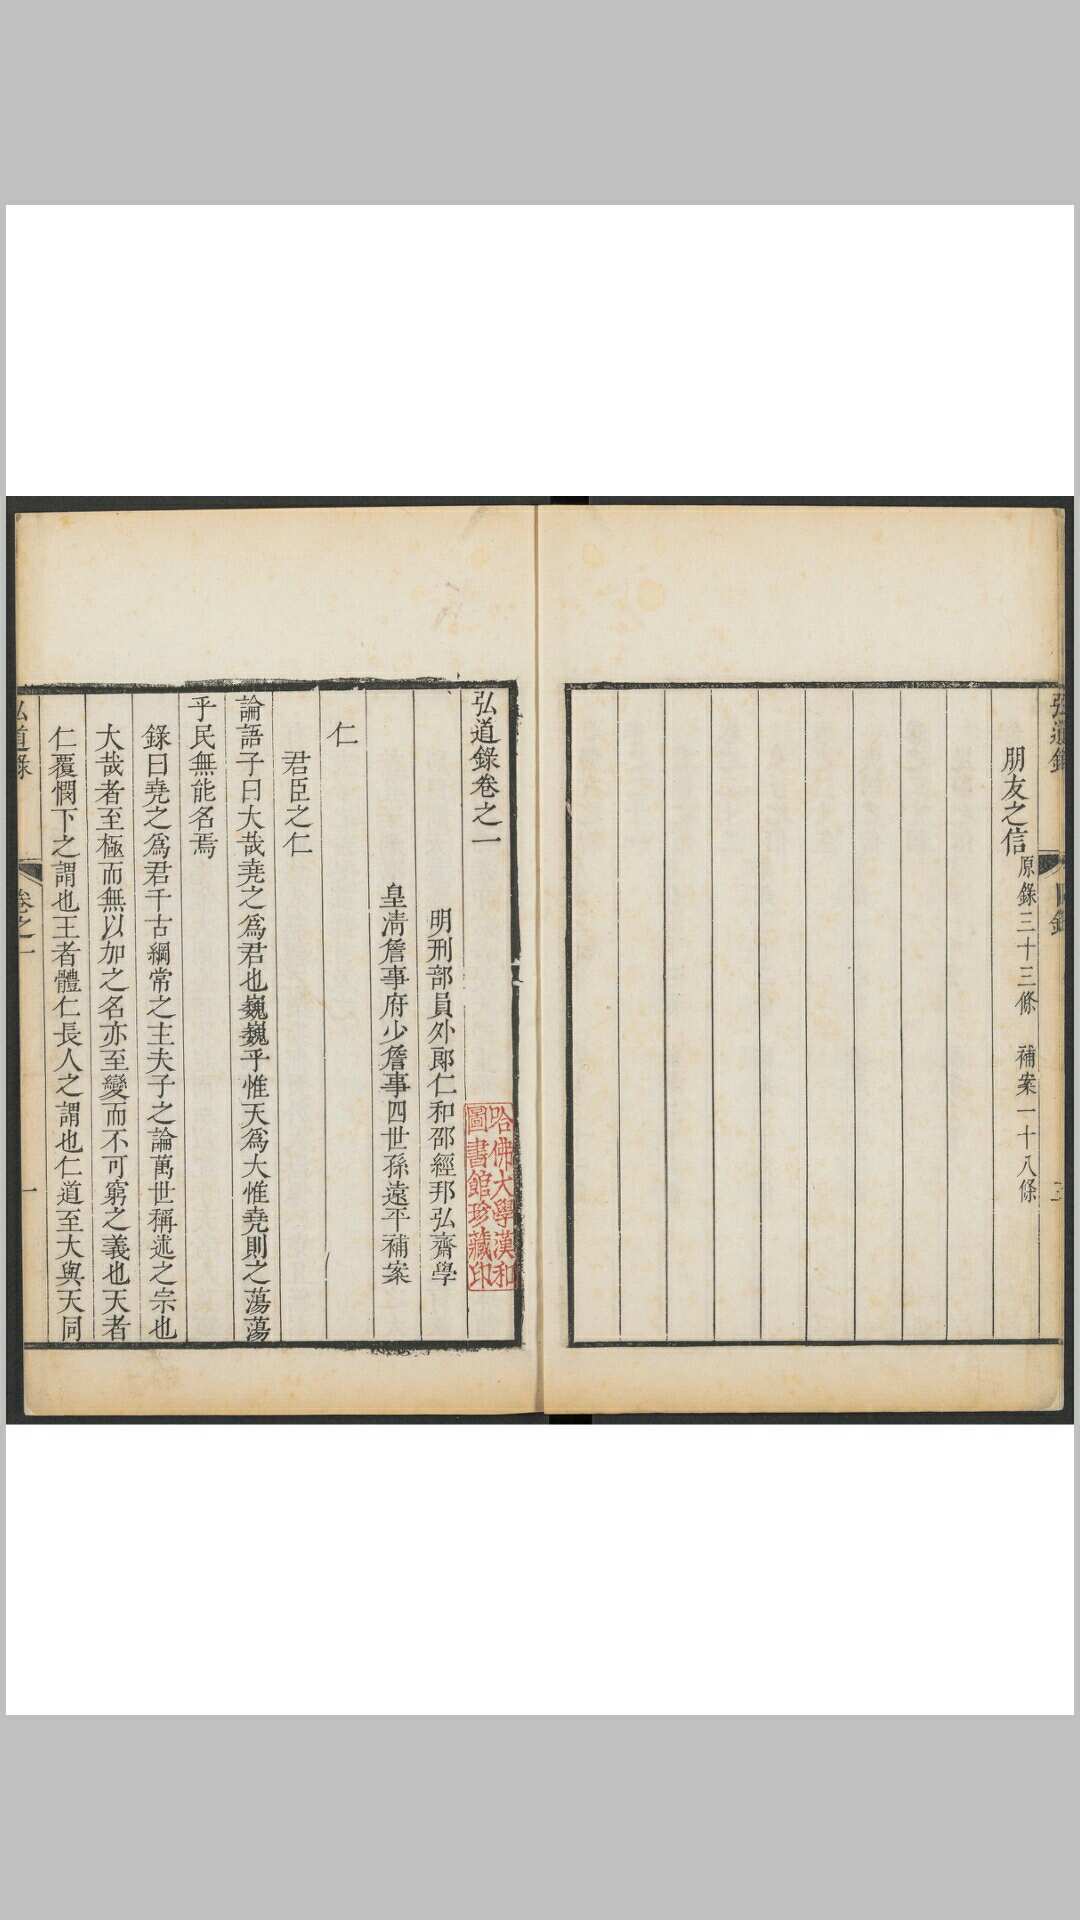 弘道錄
目錄
朋友之信原錄三十三條　補案一十八條
弘道錄卷之一
明刑部員外郎仁和邵經邦弘齋學
皇清詹事府少詹事四世孫遠平補案
仁
君臣之仁
論語子曰大哉堯之爲君也巍巍乎惟天爲大惟堯則之蕩蕩
乎民無能名焉
錄曰堯之爲君千古綱常之主夫子之論萬世稱述之宗也
大哉者至極而無以加之名亦至變而不可窮之義也天者
仁覆憫下之謂也王者體仁長人之謂也仁道至大與天同
弘道錄
卷之一
一
哈佛大學漢和
圖書館珍藏印